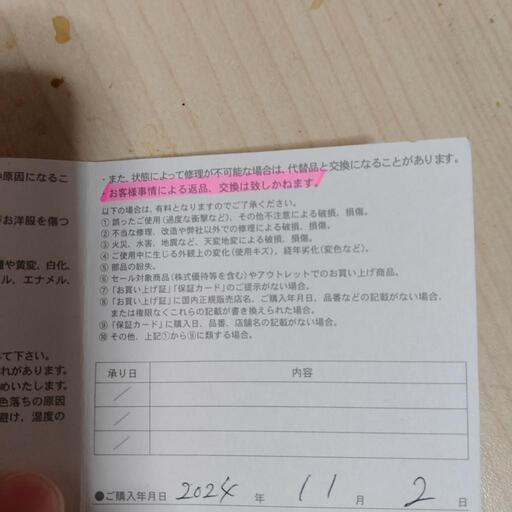 ・また、状態によって修理が不可能な場合は、代替品と交換になることがあります。
・お客様事情による返品、交換は致しかねます。
以下の場合は、有料となりますのでご了承ください。
① 誤ったご使用(過度な衝撃など)、その他不注意による破損、損傷。
② 不当な修理、改造や弊社以外での修理による破損、損傷。
③ 火災、水害、地震など、天変地変による破損、損傷。
④ ご使用中に生じる外観上の変化(使用キズ)、経年劣化(変色など)。
⑤ 部品の紛失。
⑥ セール対象商品(株式優待等を含む)やアウトレットでのお買い上げ商品。
⑦ 「お買い上げ証」「保証カード」のご提示がない場合。
⑧ 「お買い上げ証」に国内正規販売店名、ご購入年月日、品番などの記載がない場合、
または権限なくこれらの記載が書き換えられた場合。
⑨ 「保証カード」に購入日、品番、店舗名の記載がない場合。
⑩ その他、上記①から⑨に類する場合。
承り日 内容
／
／
／
●ご購入年月日 2024 年 11 月 2 日
原因になるこ
お洋服を傷つ
や黄変、白化、
ル、エナメル、
て下さい。
れがあります。
めいたします。
色落ちの原因
避け、湿度の